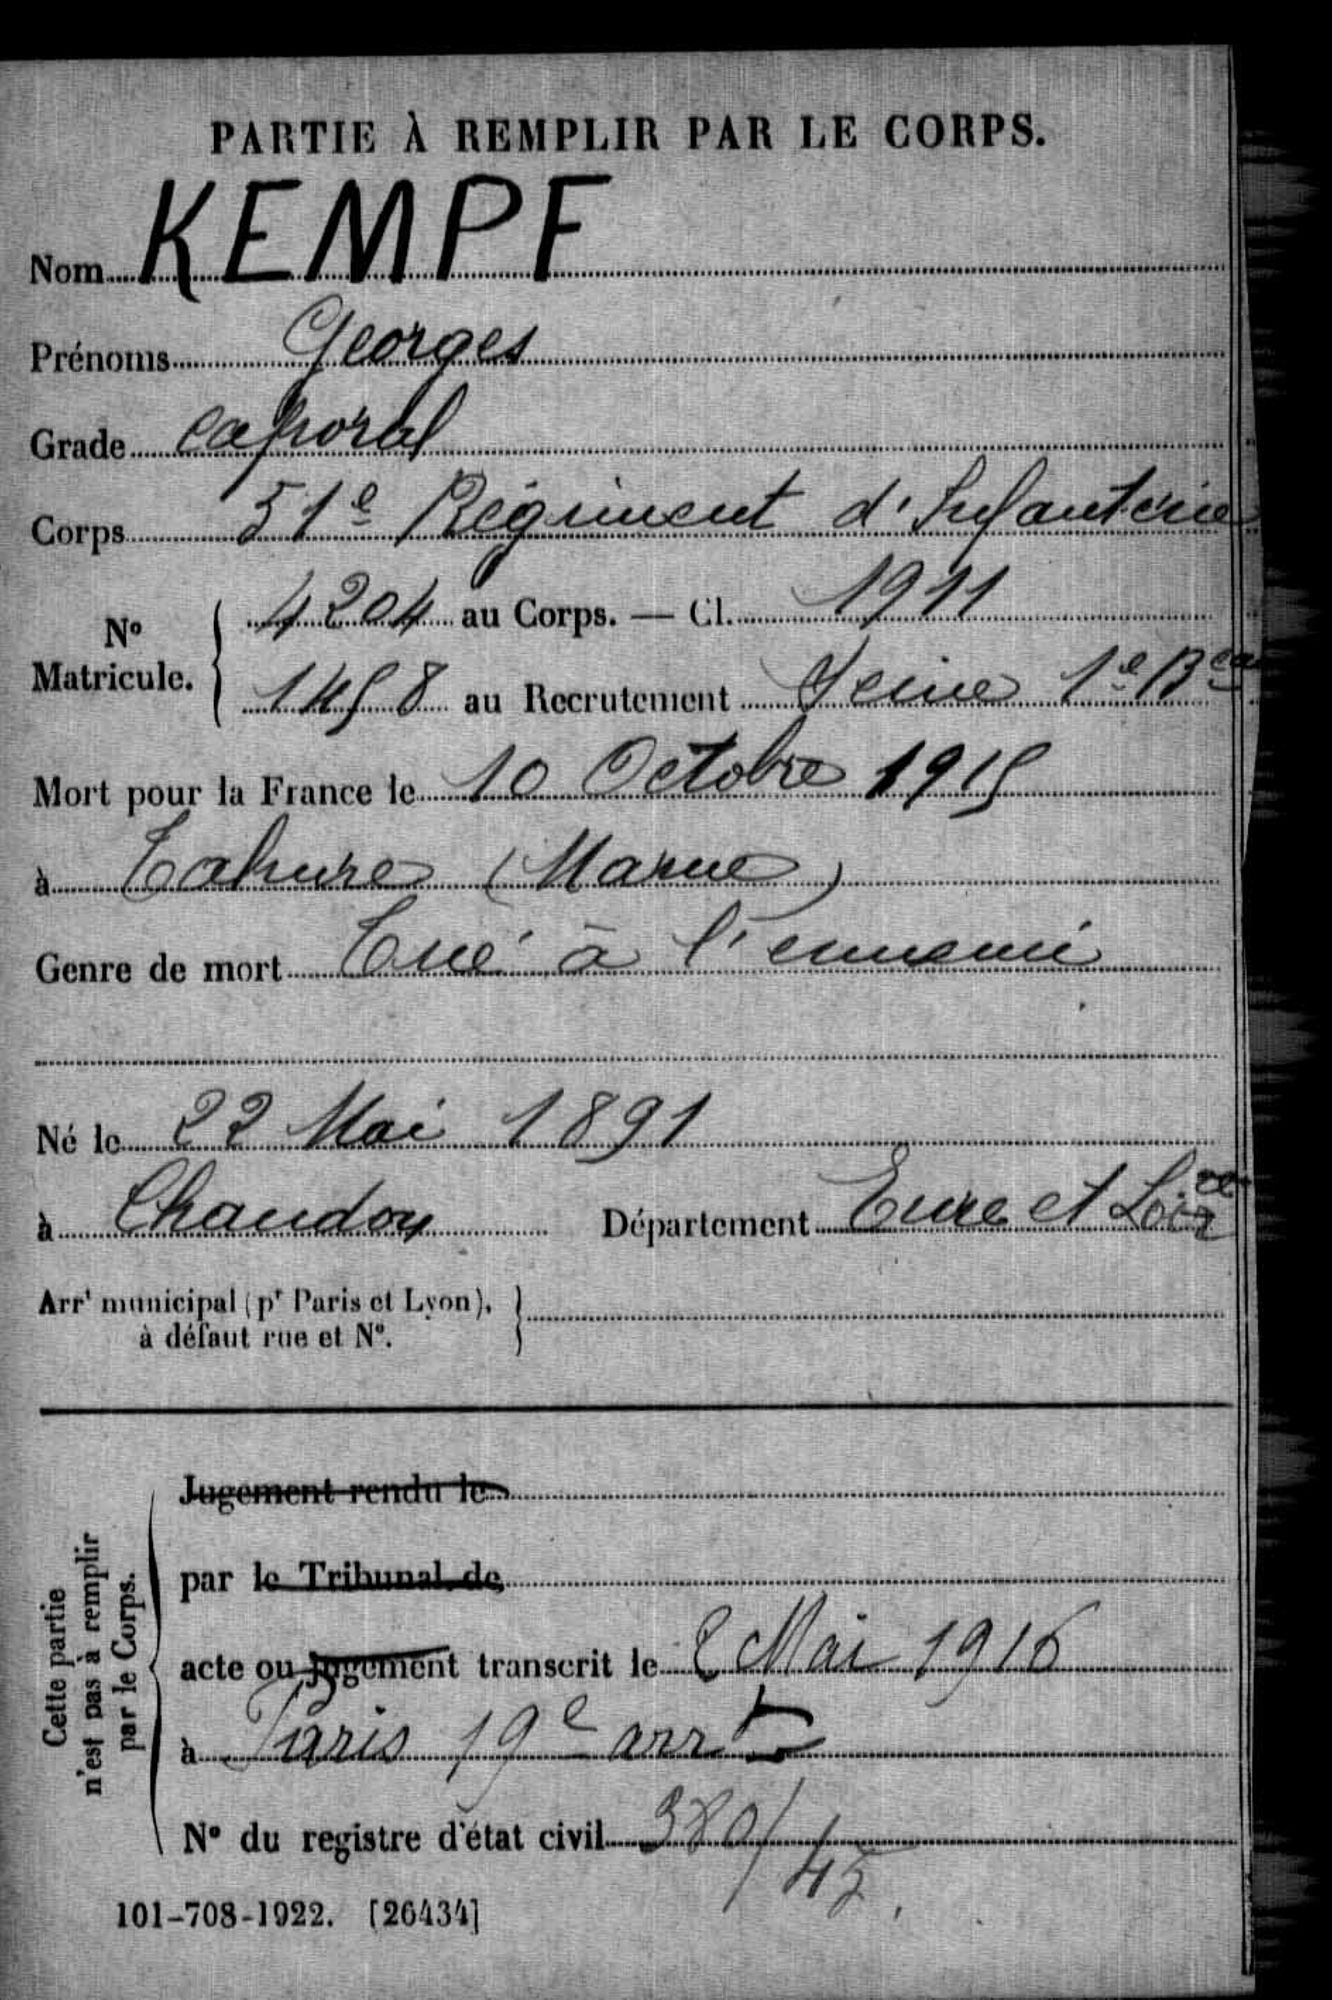 PARTIE À REMPLIR PAR LE CORPS.
Nom KEMPF
Prénoms Georges
Grade caporal
Corps 51e Régiment d'Infanterie
N° Matricule. 4204 au Corps. — Cl. 1911
1458 au Recrutement Seine 1e Beau
Mort pour la France le 10 Octobre 1915
à Tahure (Marne)
Genre de mort Tué à l'ennemi
Né le 22 Mai 1891
à Chaudon Département Eure et Loir
Arrt municipal (pr Paris et Lyon),
à défaut rue et N°.
Cette partie
n'est pas à remplir
par le Corps.
Jugement rendu le
par le Tribunal de
acte ou jugement transcrit le 2 Mai 1916
à Paris 19e arrt
N° du registre d'état civil 380/45
101-708-1922. [26434]